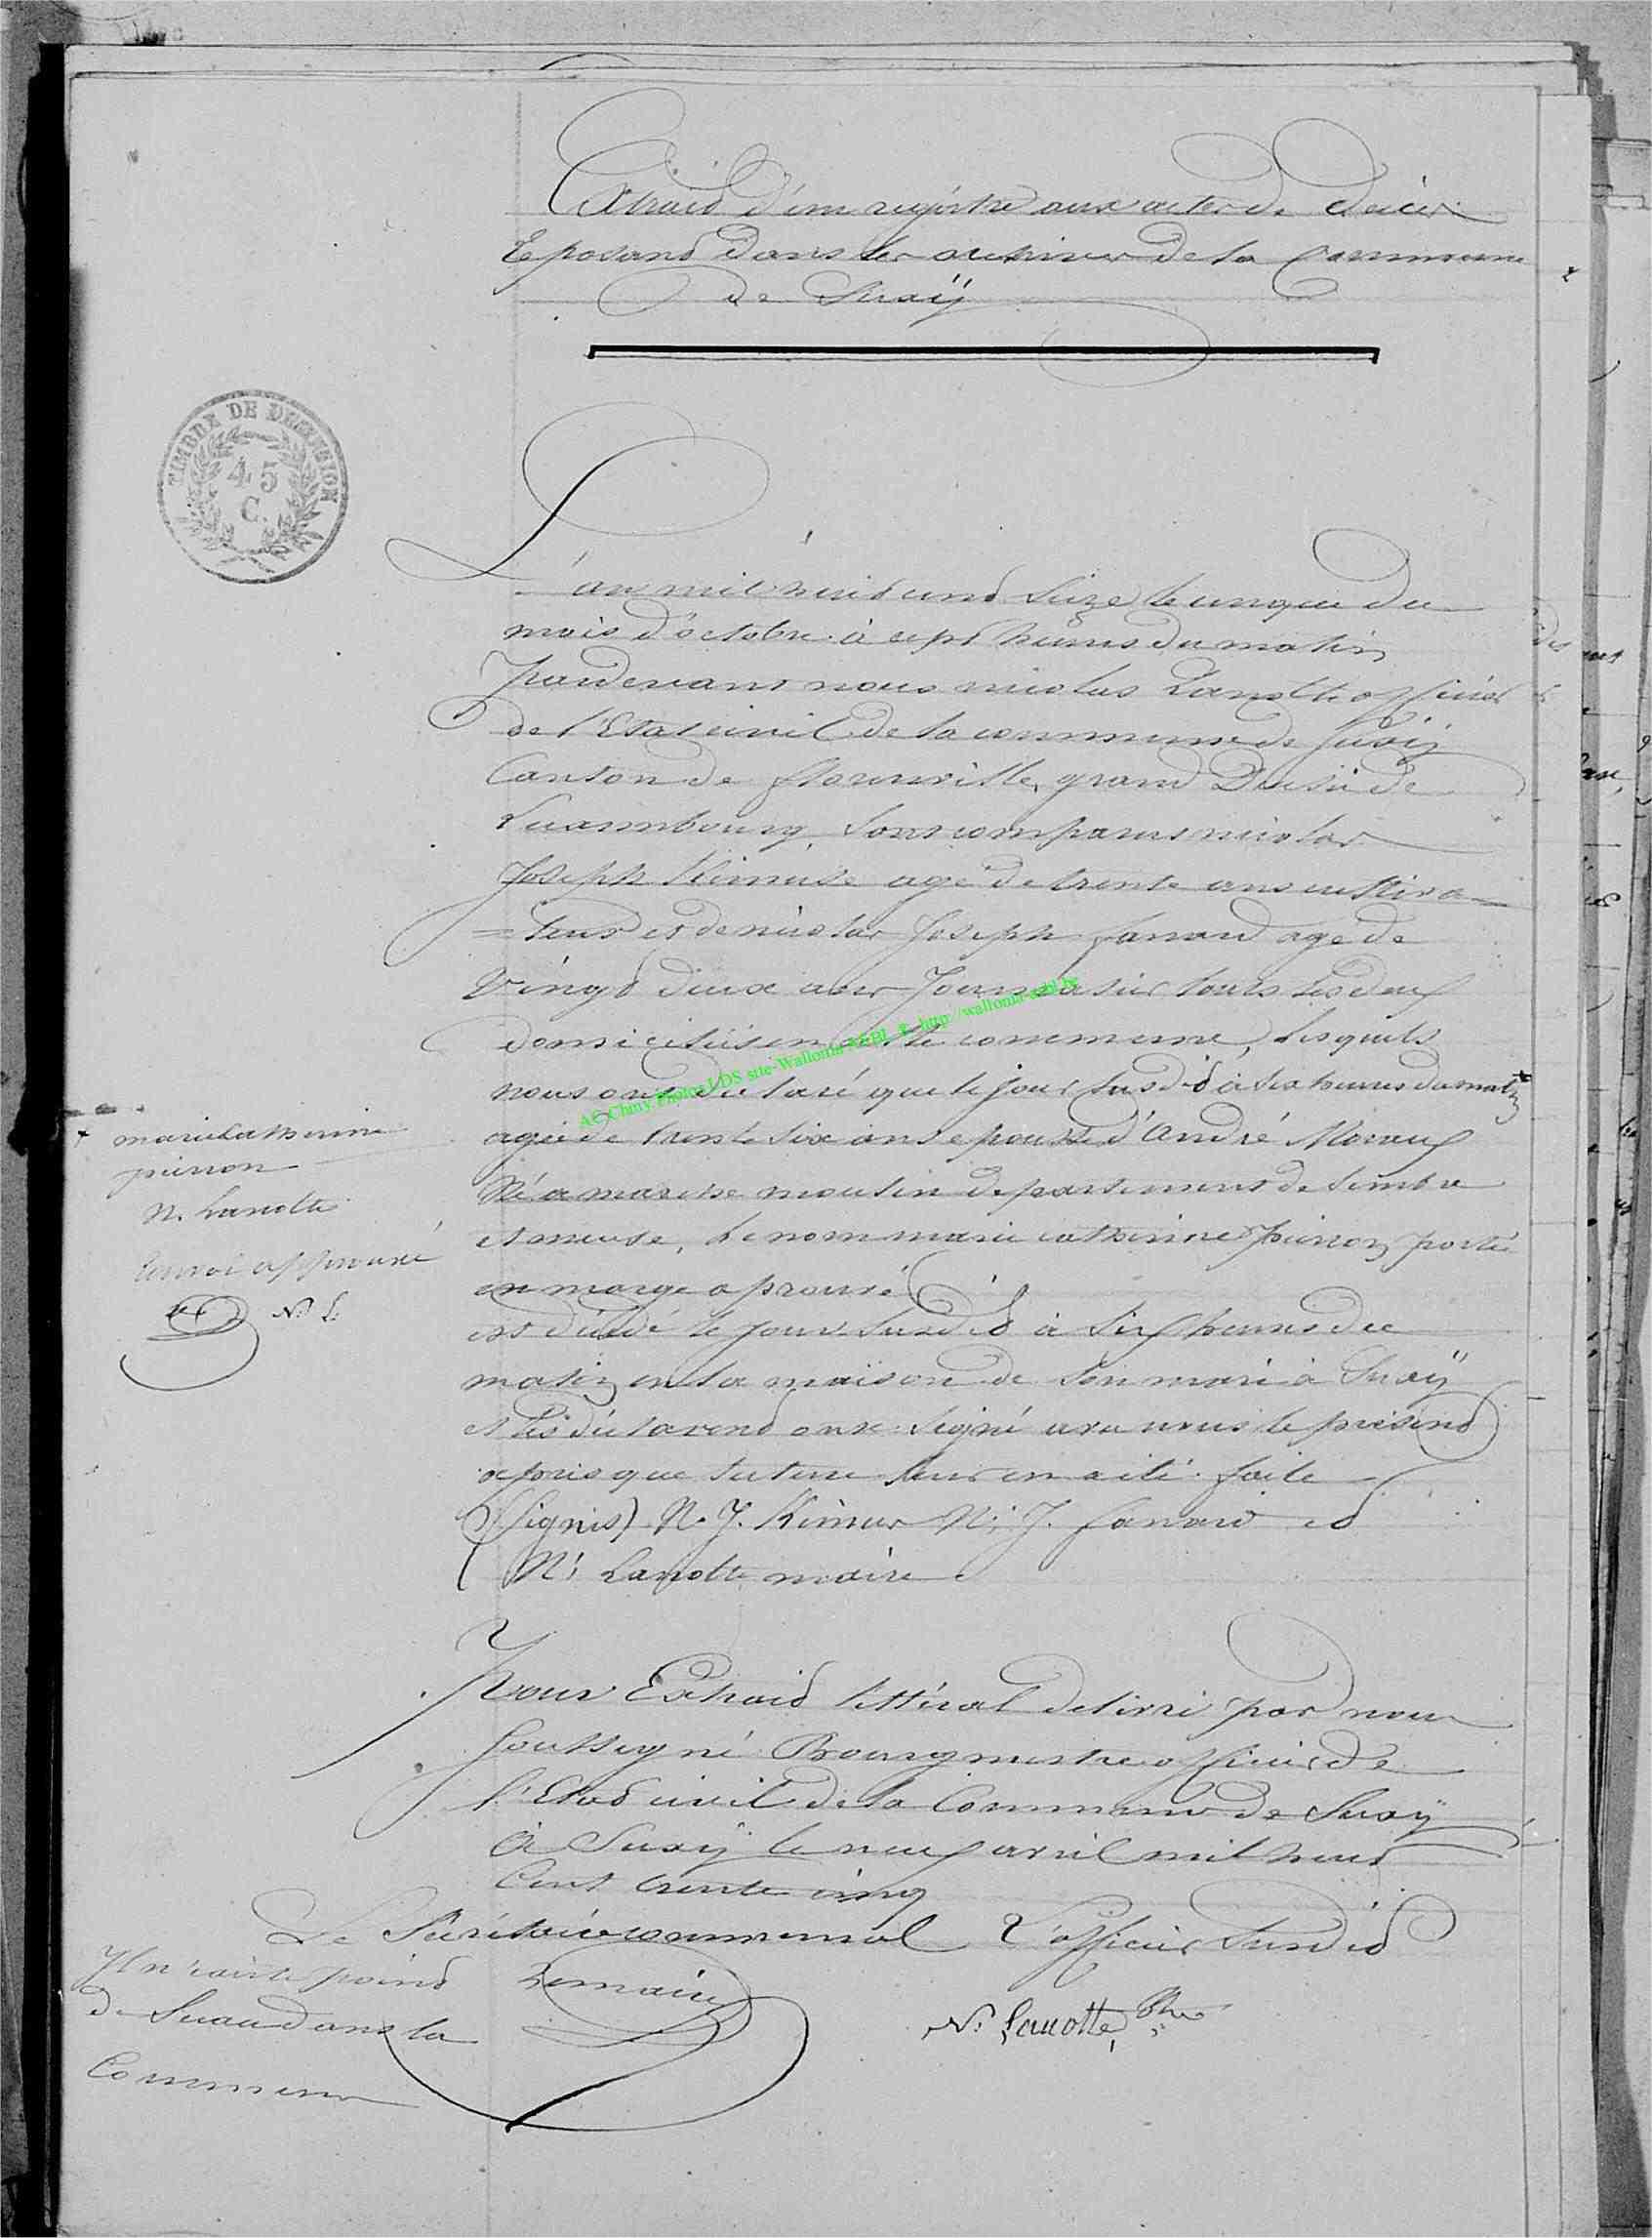 Extrait d'un registre aux actes de décès
Reposant dans les archives de la Commune
de Suxÿ
TIMBRE DE DIMENSION
45
C.
L'an mil huit cent seize le onze du
mois d'octobre à sept heures du matin
Pardevant nous nicolas Lanotte officier
de l'Etat civil de la commune de Suxÿ
Canton de florenville, grand Duché de
Luxembourg, sont comparus nicolas
Joseph age de trente ans cultiva=
=teur et de nicolas Joseph fanard age de
vingt deux ans Journalier touts les deux
domiciliés en cette commune, Lesquels
nous ont déclaré que le jour susdit à six heures du matin +
agée de trente six ans epouse d'André
Né a departement de Sambre
et meuse, le nom marie catherine pierron porté
en marge aprouvé
est décédé le jour susdit à six heures du
matin en la maison de son mari à Suxÿ
et les déclarend ont signé avec nous le présent
apris que lecture leur en a été faite
(Signés) N. J. N. J. fanard et
N. Lanotte maire
Pour Extrait littéral délivré par nous
soussigné Bourgmestre officier de
l'Etat civil de la Commune de Suxÿ
à Suxÿ le neuf avril mil huit
Cent trente cinq
Le Secrétaire communal L'officier Susdit
Lemaire
N. Lanotte,
+ marie catherine
pierron
N. Lanotte
renvoi approuvé
N. L.
Il n'existe point
de Sceau dans la
Commune
AC Chiny Photos LDS site-Wallonia ASBL http://wallonia-asbl.be